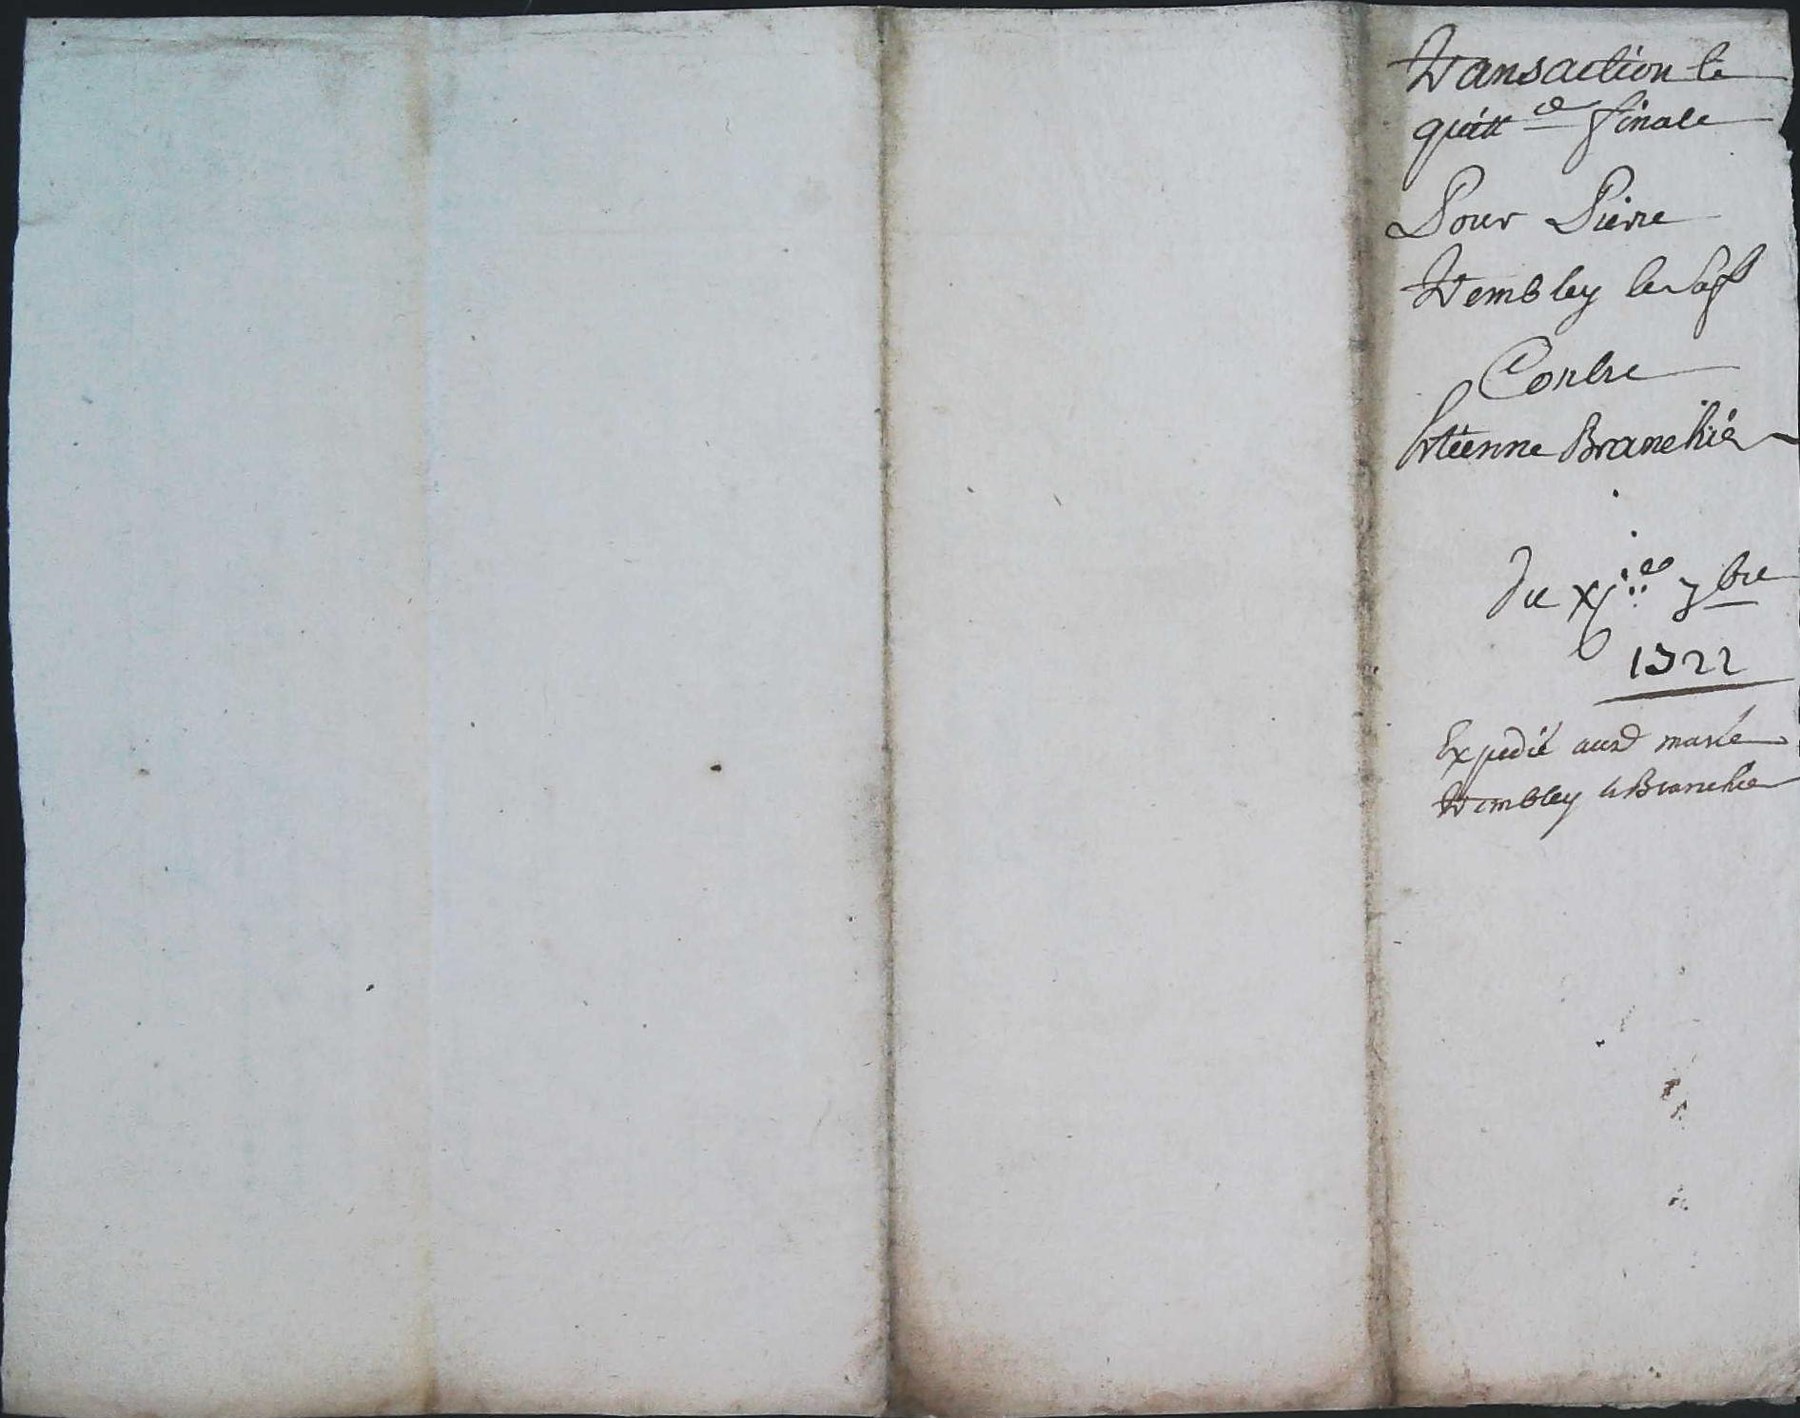 Transaction et
quitt ce finale
Pour Pierre
Trembley
Contre
Etienne Branchié
Du xj.e 7bre
1722
Expedié aud marle
Trembley & Branchie